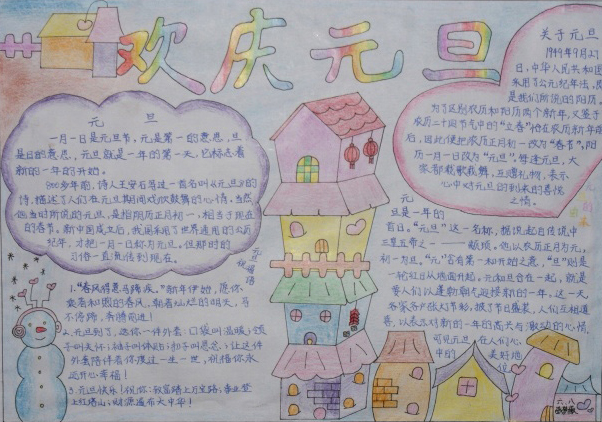 欢庆元旦
元 旦
一月一日是元旦节，元是第一的意思，旦
是日的意思，元旦就是一年的第一天，它标志着
新的一年的开始。
900多年前，诗人王安石写过一首名叫《元旦》的
诗，描述了人们在元旦期间欢欣鼓舞的心情，当然
他当时所说的元旦，是指阴历正月初一，相当于现在
的春节，新中国成立后，我国采用了世界通用的公历
纪年，才把一月一日称为元旦，但那时的
习俗一直流传到现在。
元旦祝福语
1."春风得意马蹄疾。"新年伊始，愿你
乘着和图的春风，朝着灿烂的明天，马
不停蹄，奔腾前进！
2.元旦到了，送你一件外套：口袋叫温暖；领
子叫关怀；袖子叫体贴；扣子叫思念；让这件
外套陪伴着你渡过一生一世，祝福你永
远开心幸福！
3.元旦快乐！祝你：致富踏上万宝路；事业登
上红塔山；财源遍布大中华！
关于元旦
1949年9月27
日，中华人民共和国
采用了公元纪年法，即
是我们所说的阳历，
为了区别农历和阳历两个新年，又鉴于
农历二十四节气中的"立春"恰在农历新年前
后，因此便把农历正月初一改为"春节"，阳
历一月一日改为"元旦"，每逢元旦，大
家都载歌载舞，互赠礼物，表示
心中对元旦的到来的喜悦
之情。
元
旦是一年的
首日，"元旦"这一名称，据说起自传说中
三皇五帝之一——颛顼，他以农历正月为元，
初一为旦，"元"含有第一和开始之意，"旦"是
一轮红日从地面升起，元和旦合在一起，就是
要人们以蓬勃朝气迎接新的一年，这一天
各家各户张灯节彩，披了节日盛装，人们互相道
喜，以表达对新的一年的高兴与激动的心情，
可见元旦 在人们心
中的 美好地
位
六.八